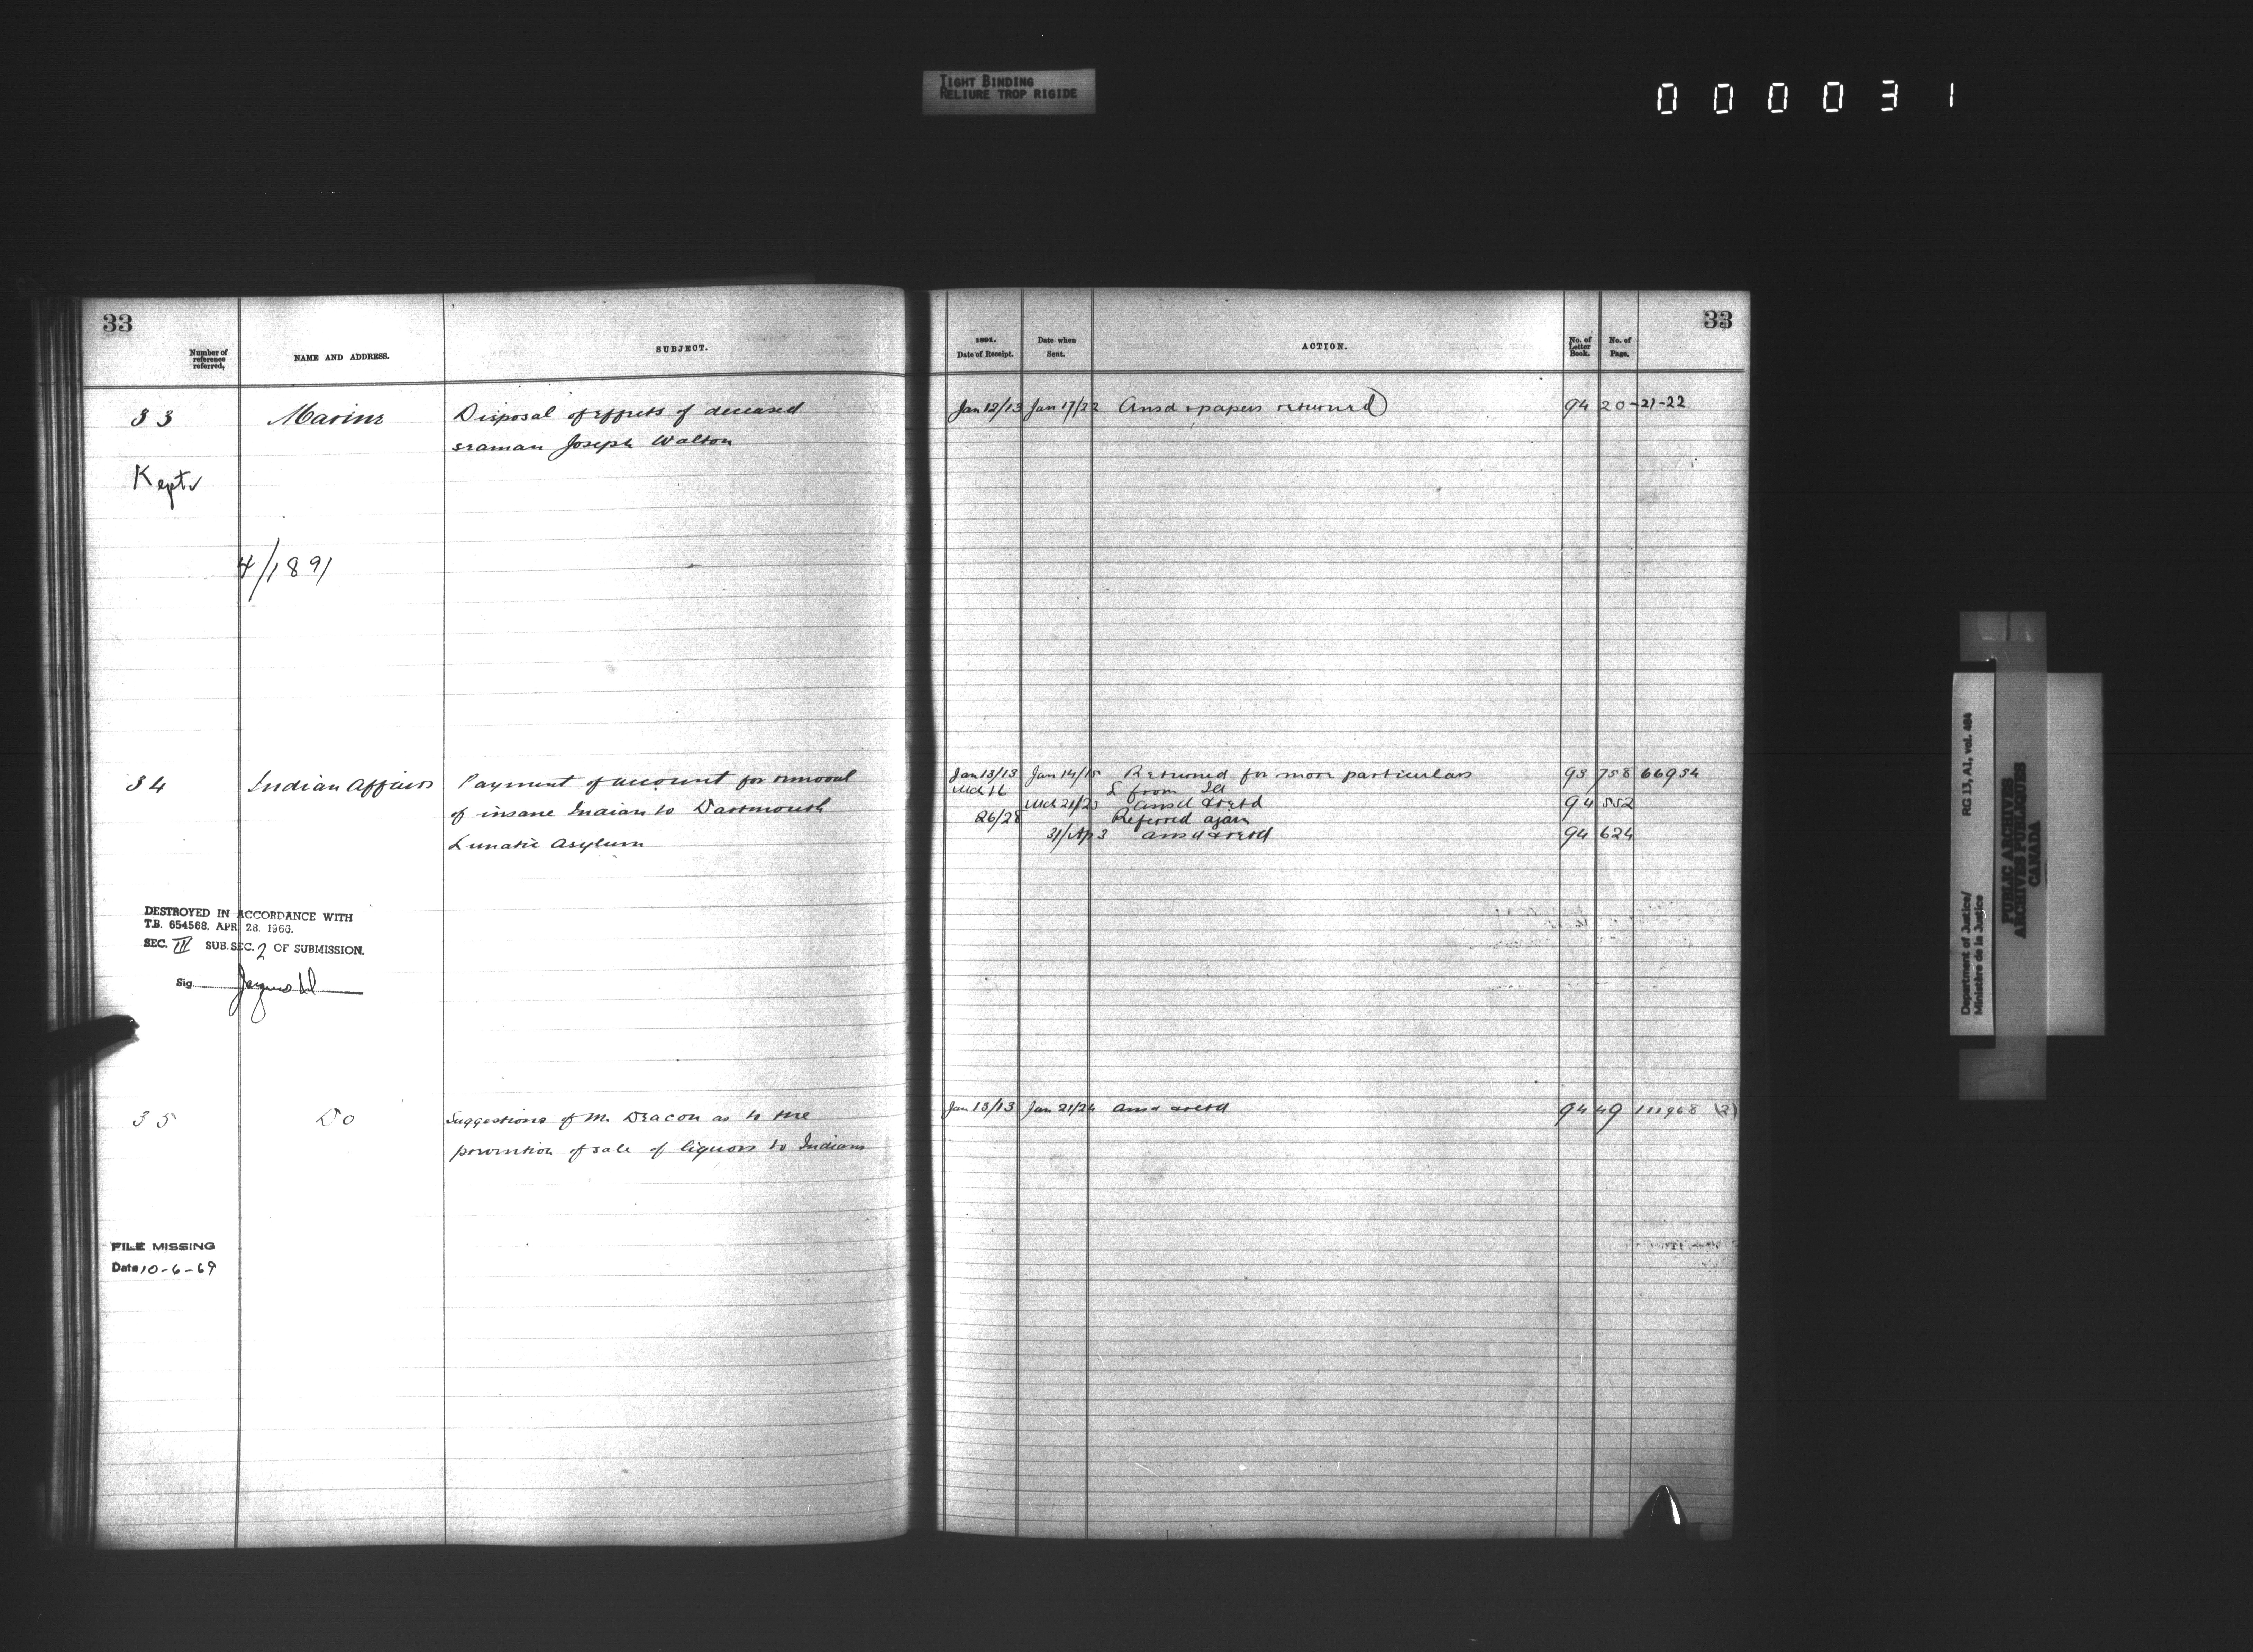 TIGHT BINDING
RELIURE TROP RIGIDE
000031
33
Number of reference referred.
NAME AND ADDRESS.
SUBJECT.
33
Marine
Disposal of effects of deceased
seaman Joseph Walton
Kept
4/1891
34
Indian Affairs
Payment of account for removal
of insane Indian to Dartmouth
Lunatic Asylum
DESTROYED IN ACCORDANCE WITH
T.B. 654568, APR. 28, 1966.
SEC. III SUB.SEC. 2 OF SUBMISSION.
Sig.
35
Do
Suggestions of Mr. Deacon as to the
prevention of sale of liquors to Indians
FILE MISSING
Date 10-6-69
33
1891.
Date of Receipt.
Date when Sent.
ACTION.
No. of Letter Book.
No. of Page.
Jan 12/13 Jan 17/22 Ansd & papers returned 94 20-21-22
Jan 13/13 Jan 14/15 Returned for more particulars 93 758 66954
Mch 16 L from IA
Mch 21/23 Ansd & retd 94 552
26/28 Referred again
31/Ap 3 Ansd & retd 94 624
Jan 13/13 Jan 21/24 Ansd & retd 94 49 111968 (2)
Department of Justice/
Ministère de la Justice
RG 13, A1, vol. 484
PUBLIC ARCHIVES
ARCHIVES PUBLIQUES
CANADA